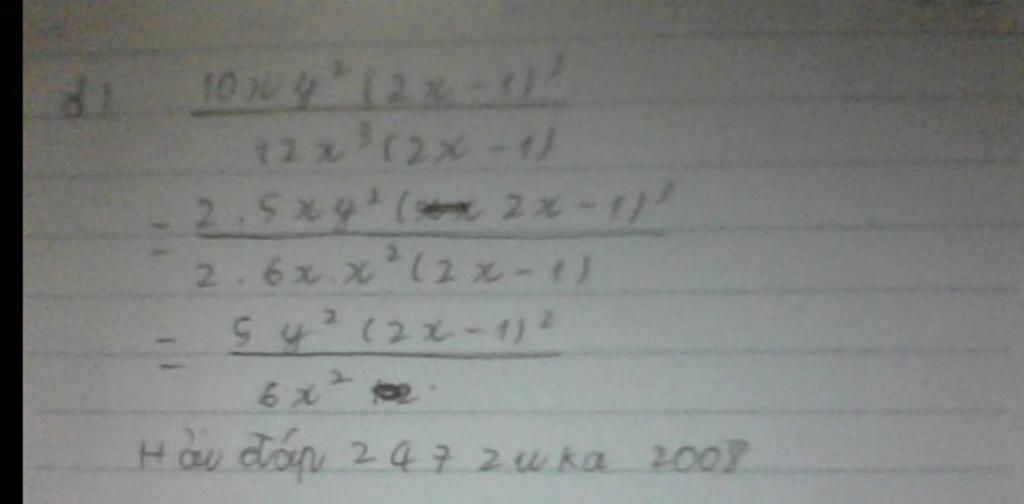 d) 10xy²(2x-1)³
12x³(2x-1)
= 2.5xy²(2x-1)³
2.6x.x²(2x-1)
= 5y²(2x-1)²
6x²
Hỏi đáp 247 zuka 2008